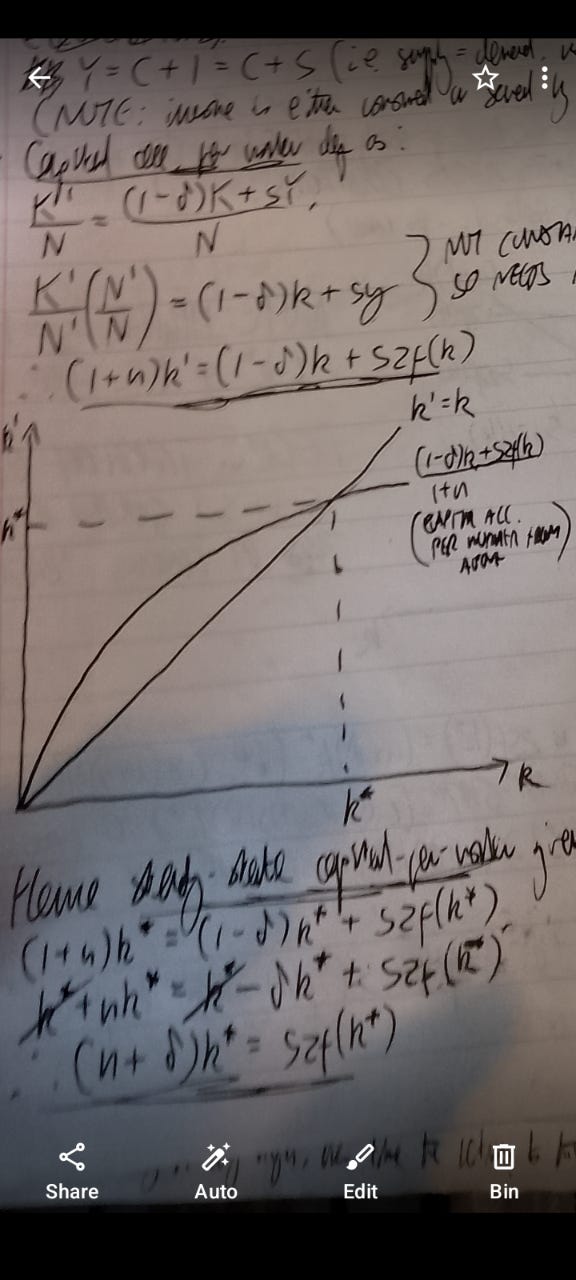 Y = C + I = C + S (i.e. supply = demand,
(NOTE: income is either consumed or saved
Capital acc. per worker def as:
K'/N = ((1-δ)K + sY)/N,
K'/N' (N'/N) = (1-δ)k + sy } NOT CONSTAN
SO NEEDS
∴ (1+n)k' = (1-δ)k + szf(k)
k'
k' = k
((1-δ)k + szf(k))/(1+n)
(CAPITAL ACC.
PER WORKER FROM
ABOVE)
k*
k
k*
Hence steady-state capital-per-worker give
(1+n)k* = (1-δ)k* + szf(k*)
k* + nk* = k* - δk* + szf(k*)
∴ (n+δ)k* = szf(k*)
Share
Auto
Edit
Bin